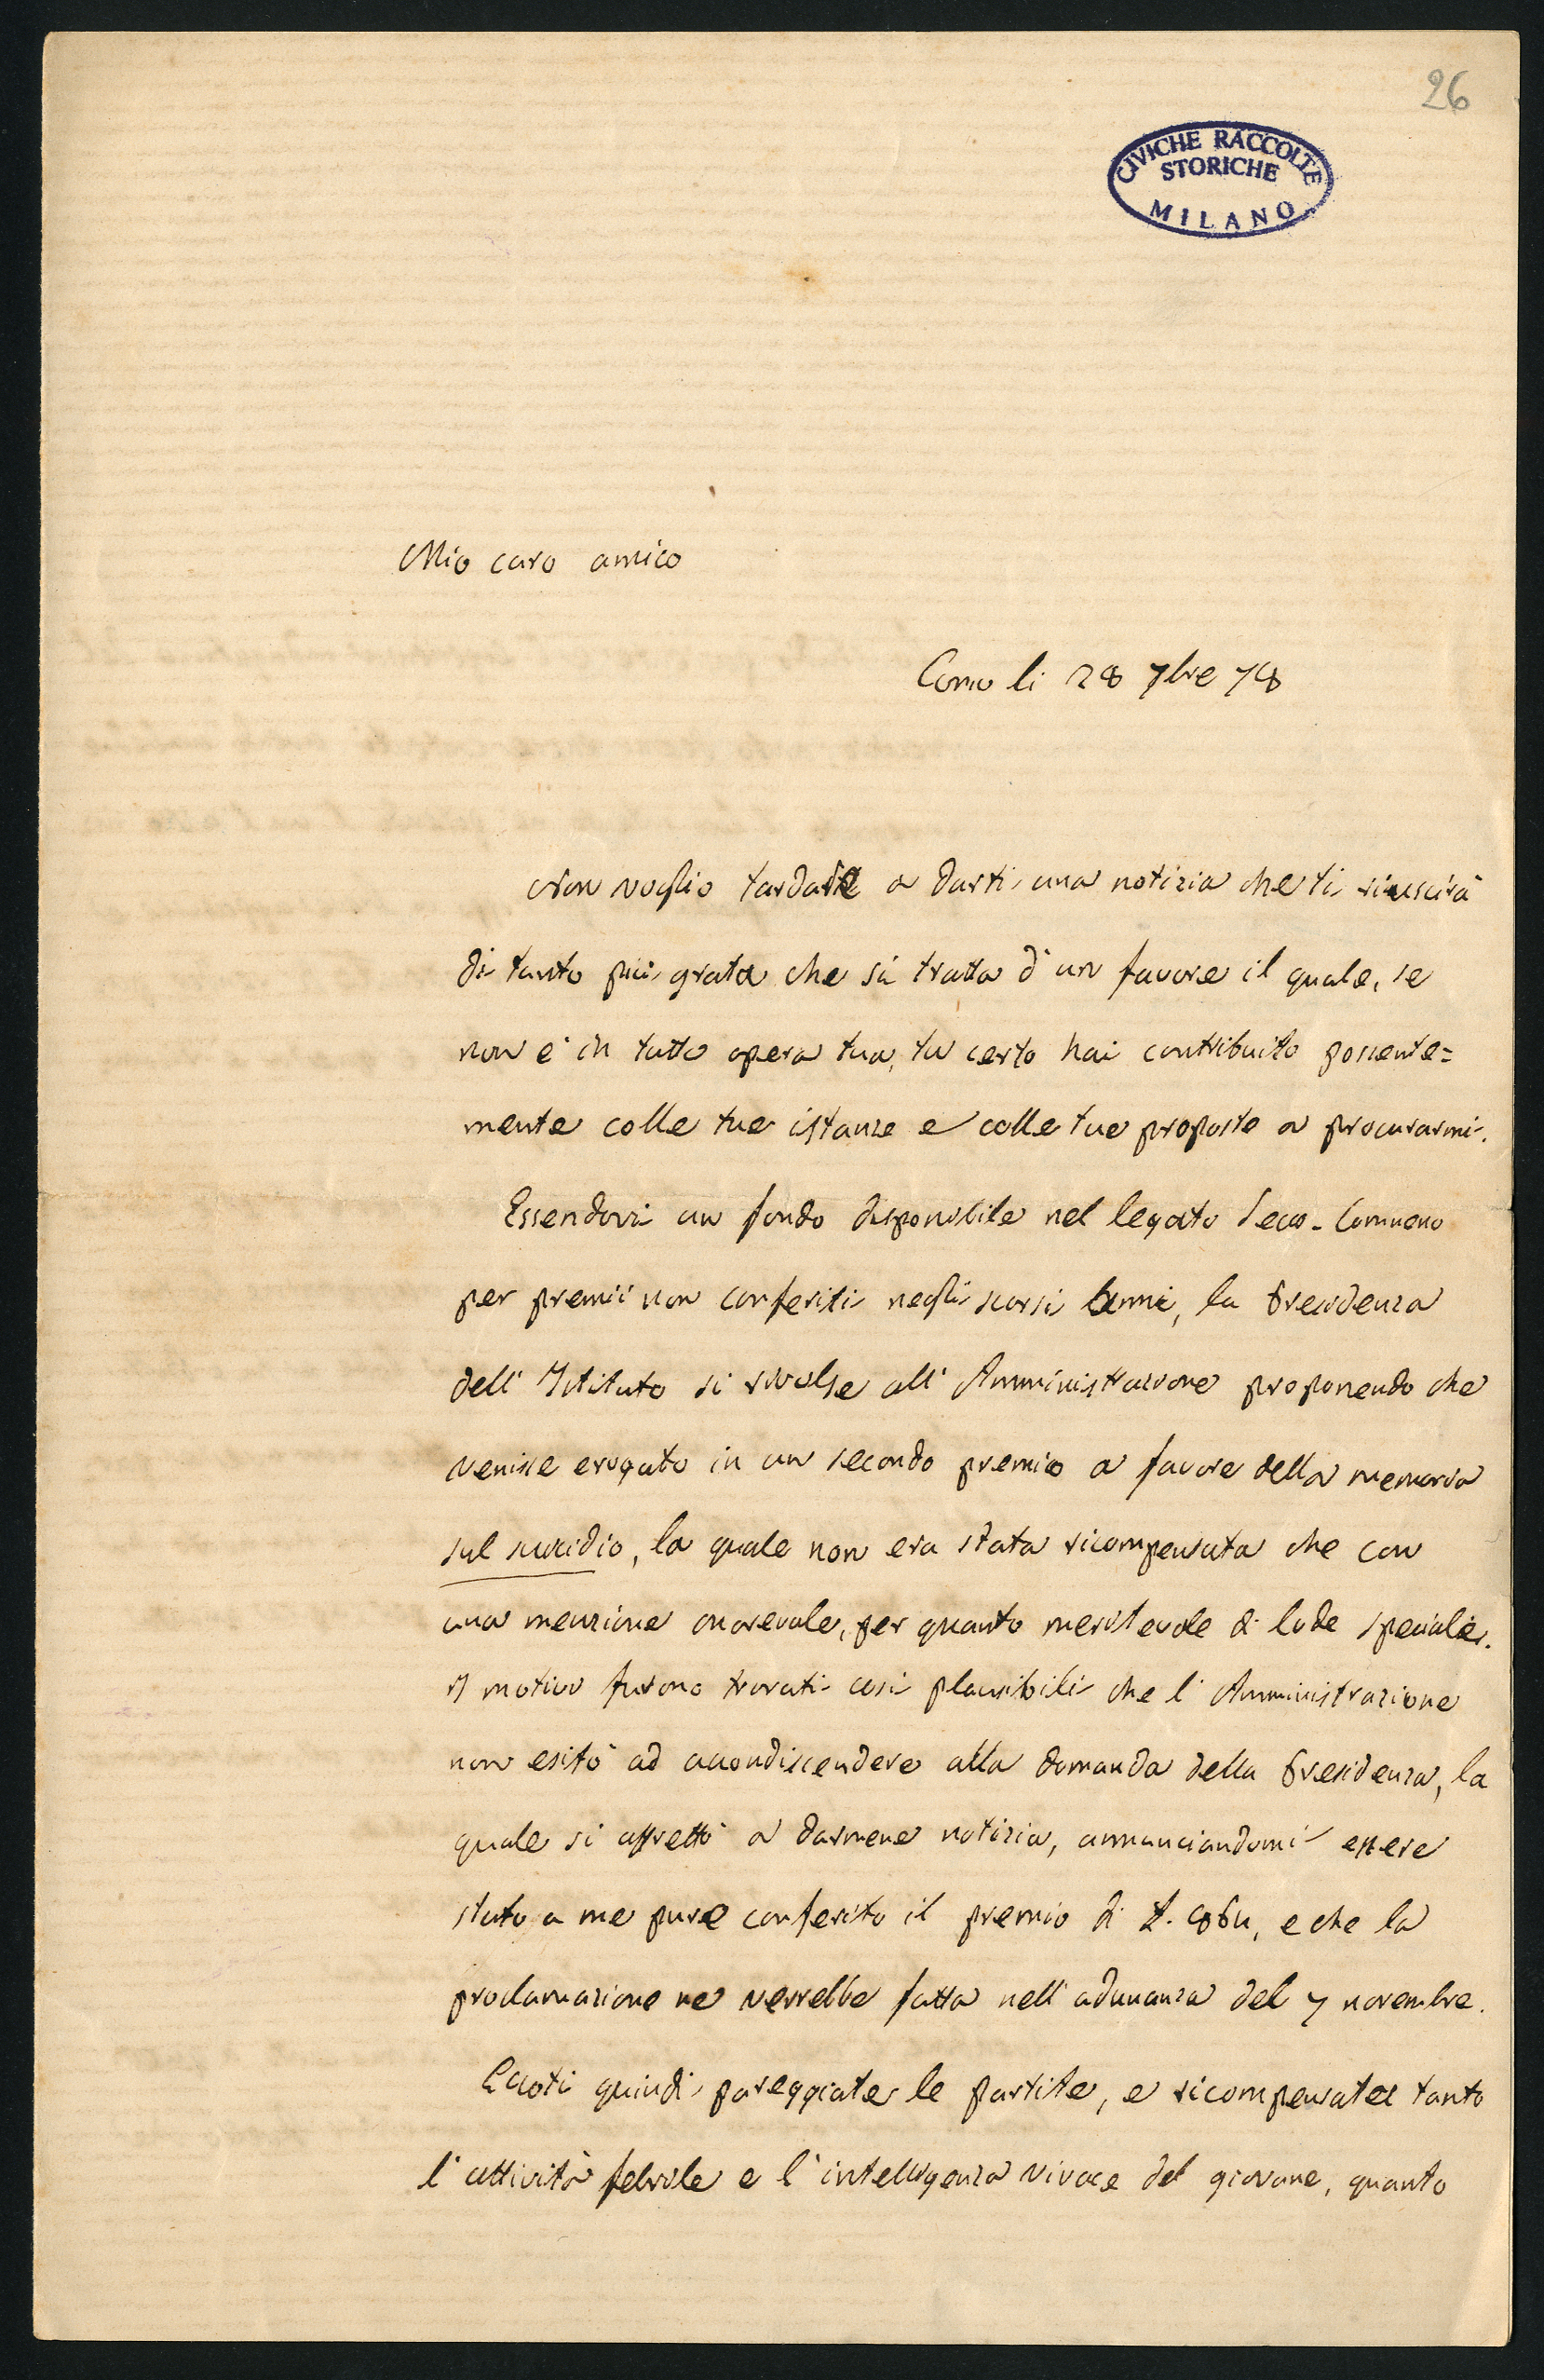 26
CIVICHE RACCOLTE
STORICHE
MILANO
Mio caro amico
Como li 28 7bre 78
Non voglio tardare a darti una notizia che ti riuscirà
di tanto più grata che si tratta d'un favore il quale, se
non è in tutto opera tua, tu certo hai contribuito possente=
mente colle tue istanze e colle tue proposte a procurarmi.
Essendovi un fondo disponibile nel legato Secco-Comneno
per premii non conferiti negli scorsi anni, la Presidenza
dell'Istituto si rivolse all'Amministrazione proponendo che
venisse erogato in un secondo premio a favore della memoria
sul suicidio, la quale non era stata ricompensata che con
una menzione onorevole, per quanto meritevole di lode speciale.
I motivi furono trovati così plausibili che l'Amministrazione
non esitò ad accondiscendere alla domanda della Presidenza, la
quale si affrettò a darmene notizia, annunciandomi essere
stato a me pure conferito il premio di £. 864, e che la
proclamazione ne verrebbe fatta nell'adunanza del 7 novembre.
Eccoti quindi pareggiate le partite, e ricompensate tanto
l'attività febrile e l'intelligenza vivace del giovane, quanto